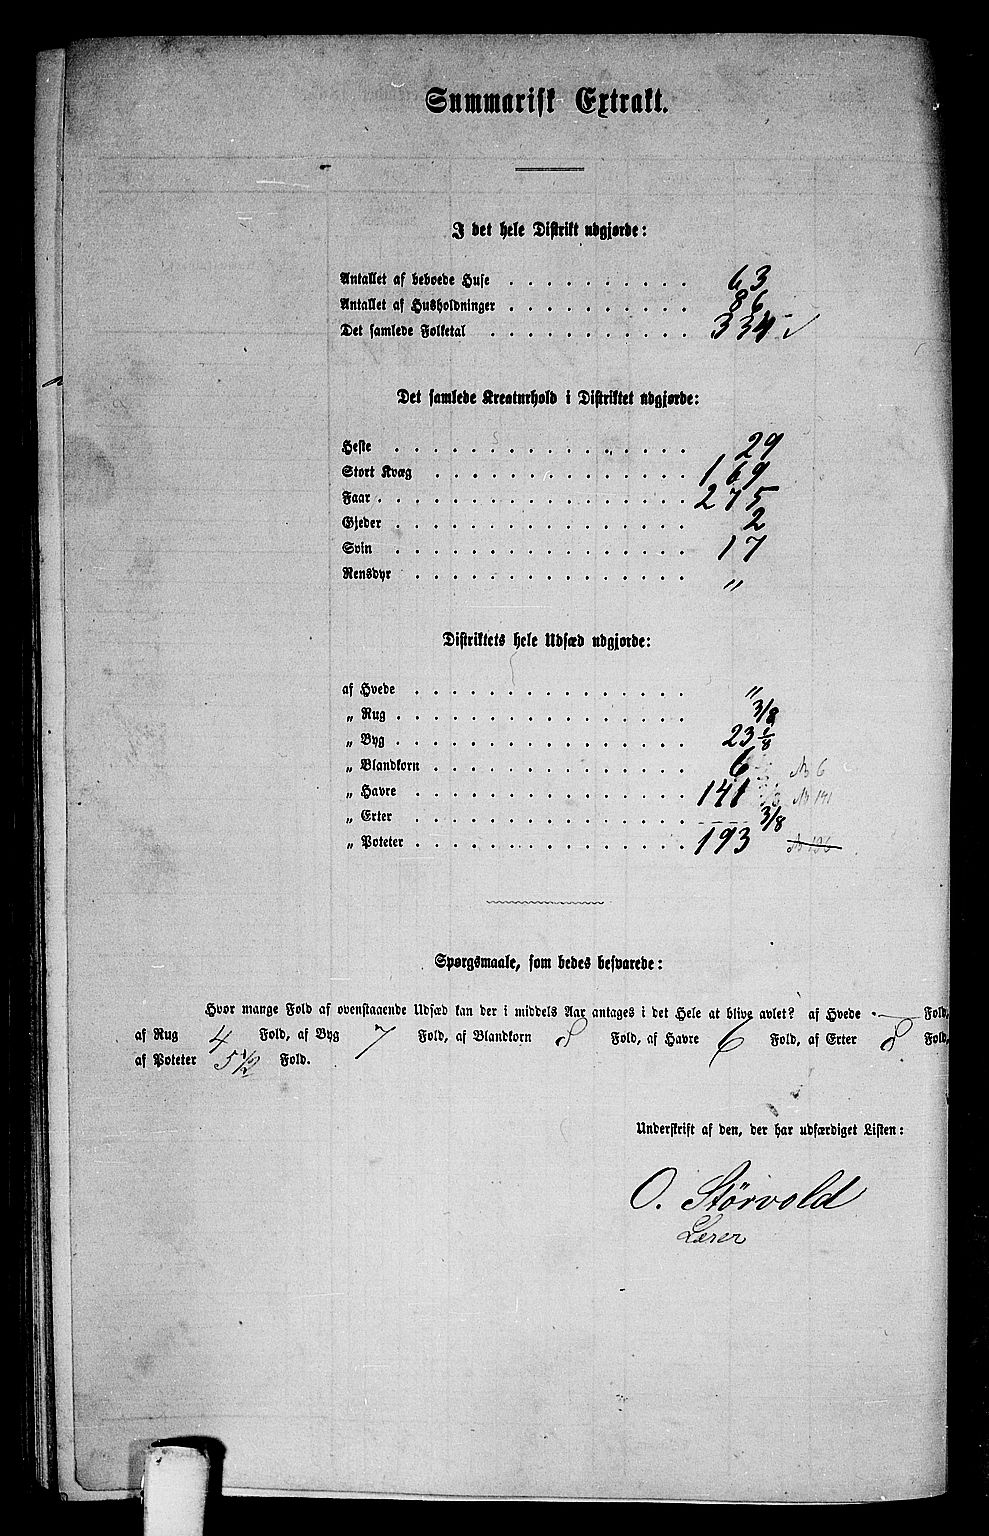 Summarisk Extrakt.
I det hele Distrikt udgjorde:
Antallet af beboede Huse . . . . . . . . . . 63
Antallet af Husholdninger . . . . . . . . . . 86
Det samlede Folketal . . . . . . . . . . . 334
Det samlede Kreaturhold i Distriktet udgjorde:
Heste . . . . . . . . . . . . . . . . 29
Stort Kvæg . . . . . . . . . . . . . . 169
Faar . . . . . . . . . . . . . . . . . 275
Gjeder . . . . . . . . . . . . . . . . 2
Svin . . . . . . . . . . . . . . . . 17
Rensdyr . . . . . . . . . . . . . . . "
Distriktets hele Udsæd udgjorde:
af Hvede . . . . . . . . . . . . . . . "
„ Rug . . . . . . . . . . . . . . . . 3/8
„ Byg . . . . . . . . . . . . . . . . 23 1/8
„ Blandkorn . . . . . . . . . . . . . . 6 N 6
„ Havre . . . . . . . . . . . . . . . 141 N 141
„ Erter . . . . . . . . . . . . . . . 3/8
„ Poteter . . . . . . . . . . . . . . . 193
Spørgsmaale, som bedes besvarede:
Hvor mange Fold af ovenstaaende Udsæd kan der i middels Aar antages i det Hele at blive avlet? af Hvede — Fold,
af Rug 4 Fold, af Byg 7 Fold, af Blandkorn 8 Fold, af Havre 6 Fold, af Erter 8 Fold,
af Poteter 5 1/2 Fold.
Underskrift af den, der har udfærdiget Listen:
O. Störvold
Lærer